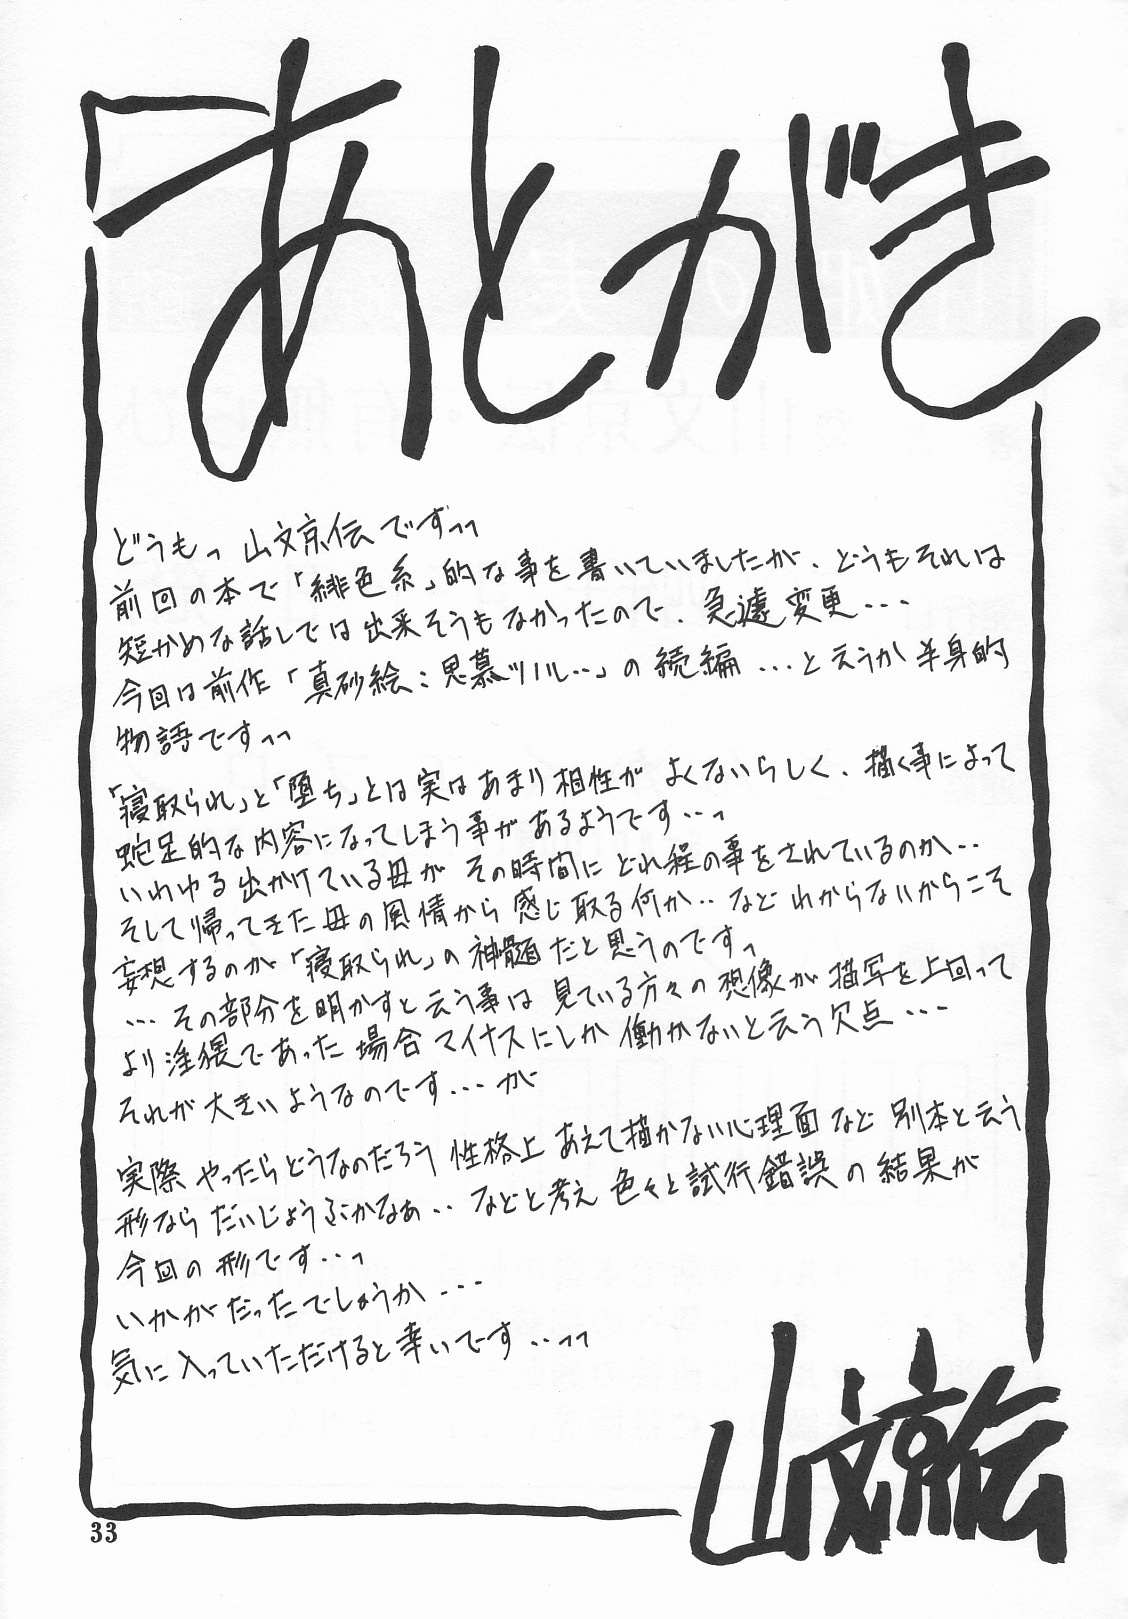 あとがき
どうもっ 山文京伝ですっっ
前回の本で「緋色系」的な事を書いていましたが、どうもそれは
短かめな話しでは出来そうもなかったので、急遽変更・・・
今回は前作「真砂絵:思慕ツノル・・」の続編・・・と云うか半身的
物語ですっっ
「寝取られ」と「堕ち」とは実はあまり相性が よくないらしく、描く事によって
蛇足的な内容になってしまう事があるようです・・っ
いわゆる出かけている母が その時間に どれ程の事をされているのか・・
そして帰ってきた母の風情から 感じ取る何か・・ など わからないからこそ
妄想するのが「寝取られ」の神髄だと思うのですっ
・・・その部分を明かすと云う事は 見ている方々の 想像が 描写を上回って
より淫猥であった 場合 マイナスにしか 働かないと云う欠点・・・
それが大きいようなのです・・・が
実際 やったらどうなのだろう 性格上 あえて描かない心理面など 別本と云う
形なら だいじょうぶかなぁ・・ などと考え 色々と試行錯誤の 結果が
今回の 形です・・っ
いかがだったでしょうか・・・
気に入っていただけると幸いです・・っっ
山文京伝
33